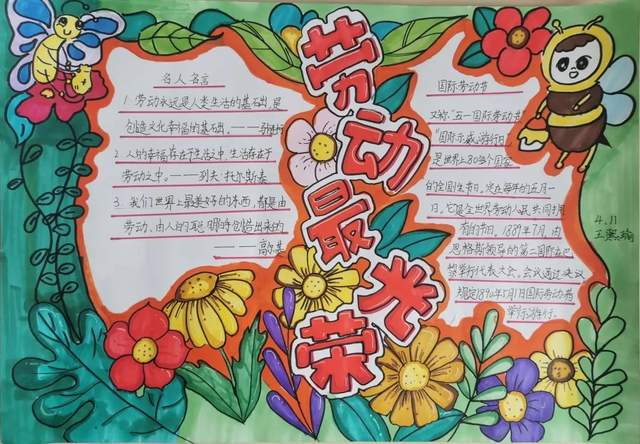 劳动最光荣
名人名言
1. 劳动永远是人类生活的基础，是
创造文化幸福的基础。——马卡连柯
2. 人的幸福存在于生活之中，生活存在于
劳动之中。——列夫·托尔斯泰
3. 我们世界上最美好的东西，都是由
劳动、由人的聪明的手创造出来的
——高尔基
国际劳动节
又称"五一国际劳动节
"国际示威游行日，
是世界上80多个国家
的全国性节日。定在每年的五月一
日。它是全世界劳动人民共同拥
有的节日。1889年7月，由
恩格斯领导的第二国际在巴
黎举行代表大会。会议通过决议
规定1890年5月1日国际劳动者
举行游行。
4.11